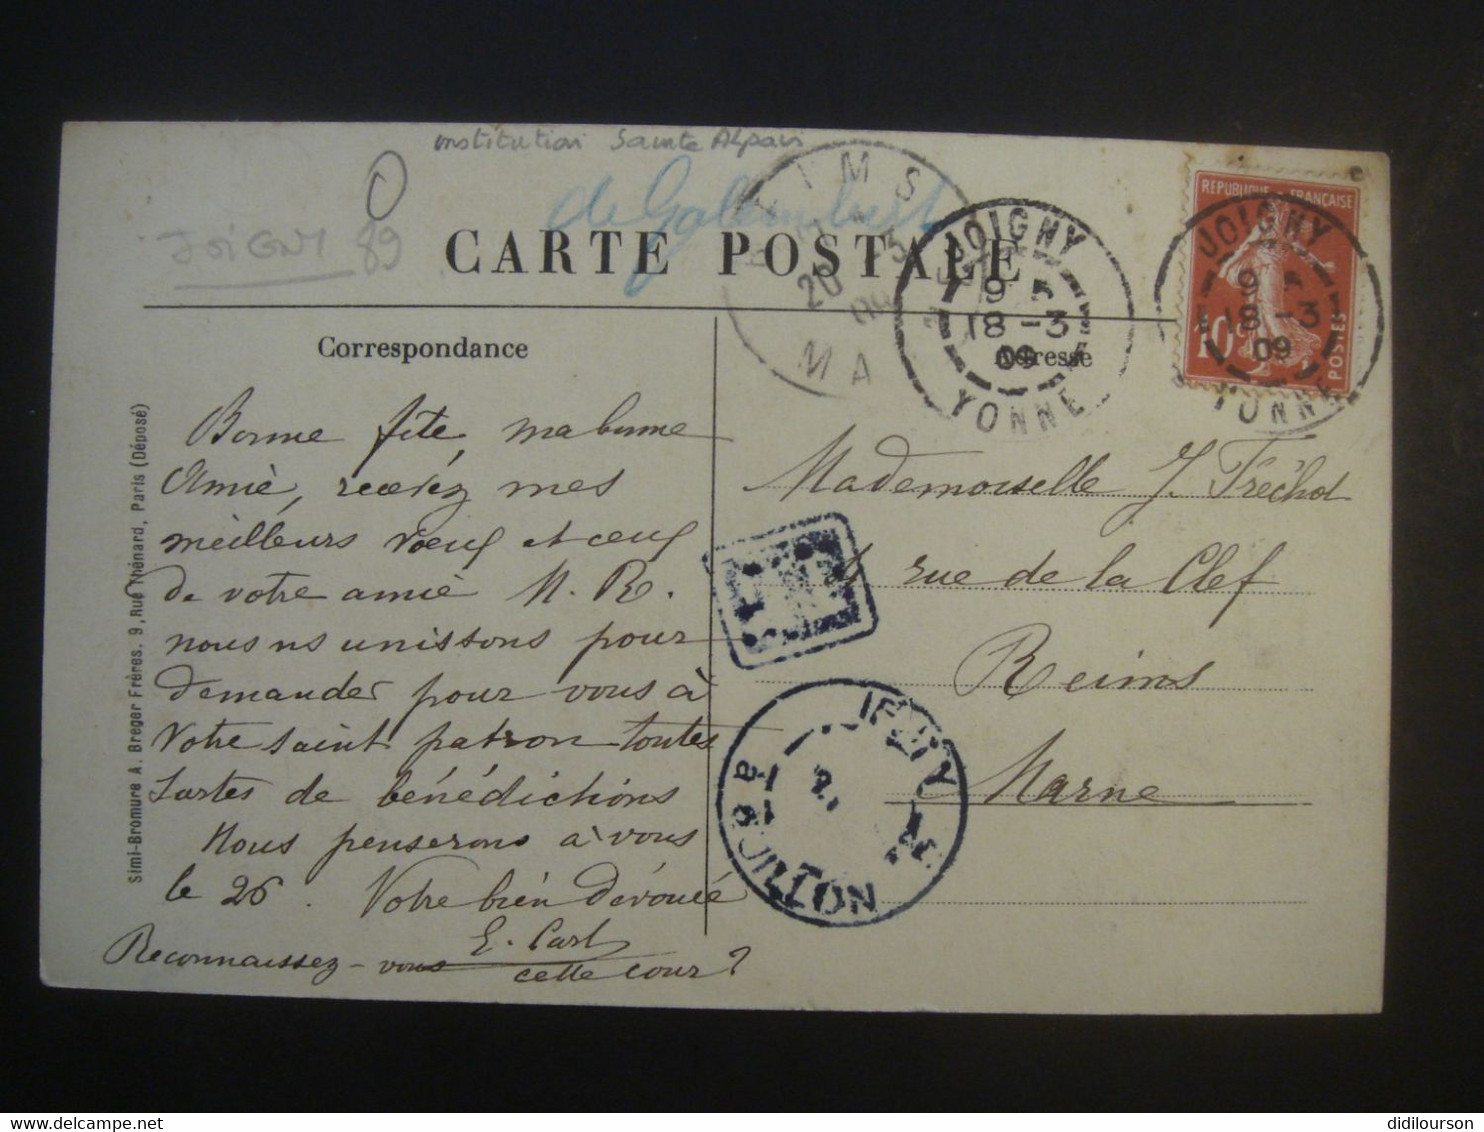 institution Sainte Alpais
de Galembert
JOIGNY 89
CARTE POSTALE
REIMS
20 -3
09
MA
JOIGNY
9 5
18 -3
09
YONNE
REPUBLIQUE FRANÇAISE
10
POSTES
JOIGNY
9 5
18 -3
09
YONNE
Correspondance
Adresse
Bonne fête ma bonne
Amie, recevez mes
meilleurs voeux et ceux
de votre amie M. R.
nous ns unissons pour
demander pour vous à
Votre saint patron toutes
sortes de bénédictions
Nous penserons à vous
le 26. Votre bien dévouée
E. Carl
Reconnaissez-vous cette cour ?
Mademoiselle J. Tréchot
rue de la Clef
Reims
Marne
DISTRIBUTION
Simi-Bromure A. Breger Frères, 9, Rue Thénard, Paris (Déposé)
didilourson